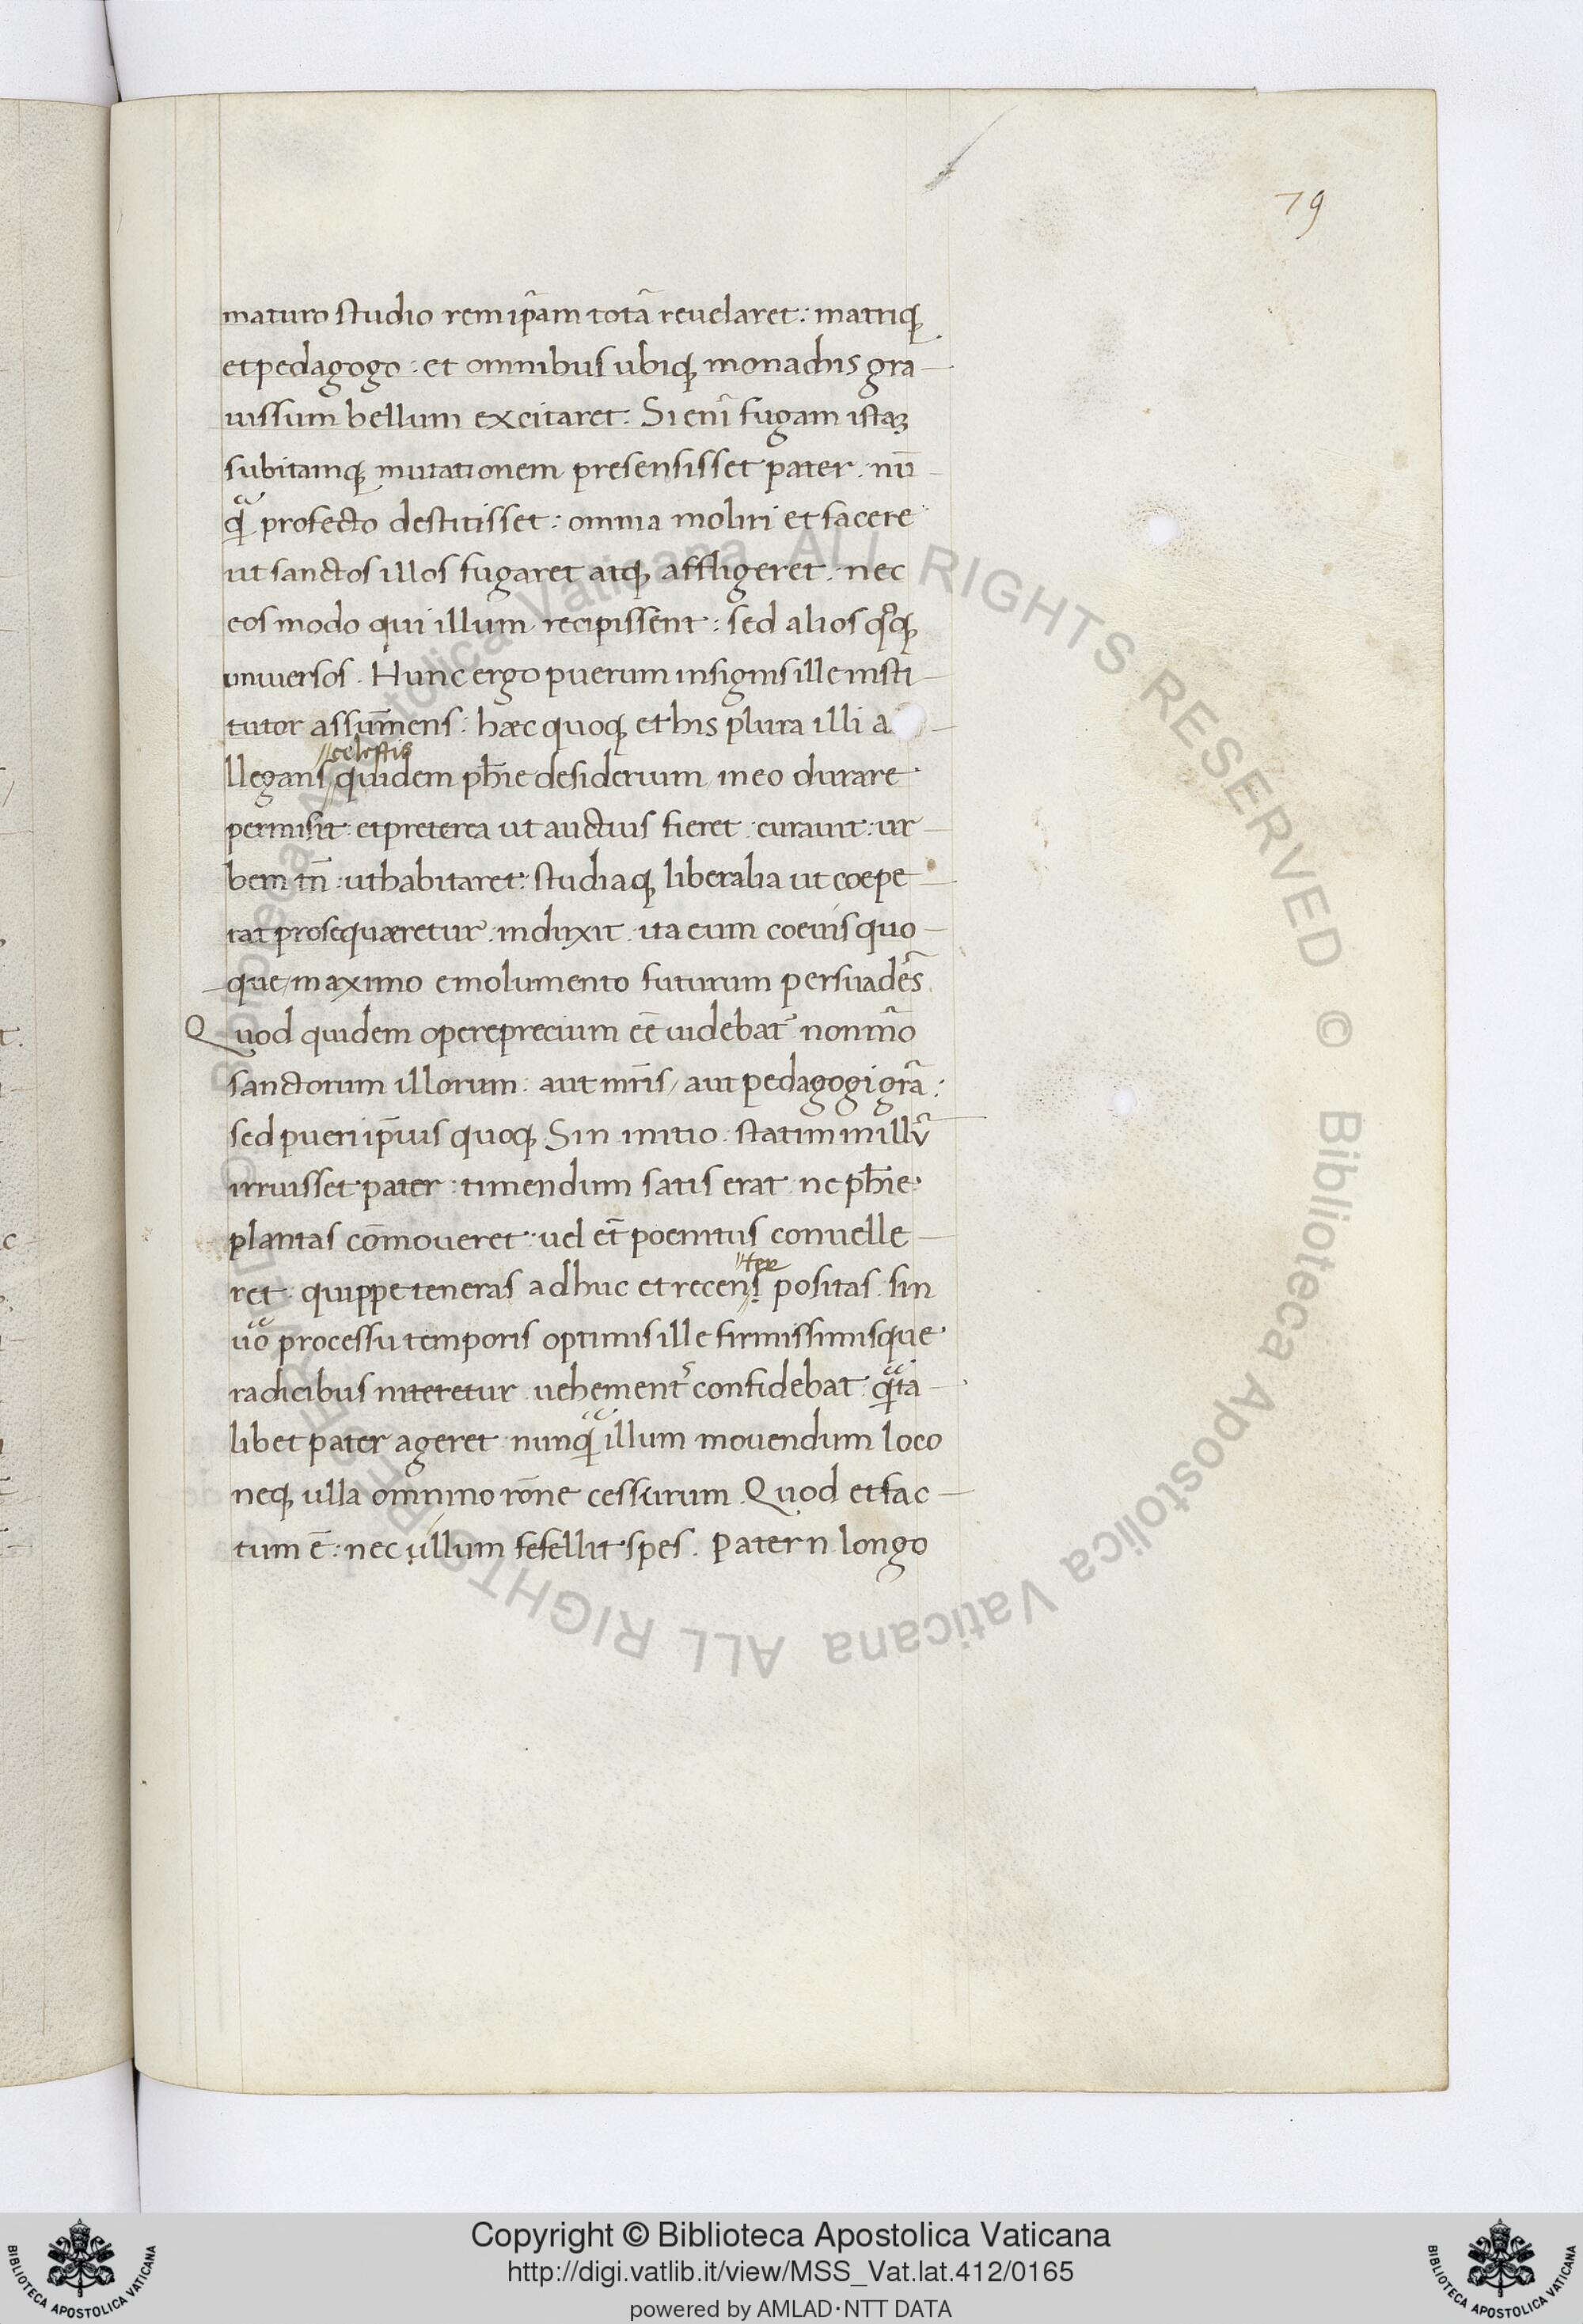 79
maturo studio rem ip̃am totã reuelaret: matriq;
et pedagogo: et omnibus ubiq; monachis gra
uissum bellum excitaret. Si enĩ fugam istaꝫ
subitamq; mutationem presensisset pater. nũ
q̃ profecto destitisset: omnia moliri et facere
ut sanctos illos fugaret atq; affligeret. nec
eos modo qui illum recipissent: sed alios
uniuersos. Hunc ergo puerum insignis ille insti
tutor assum̃ens: hæc quoq; et his plura illi a
//celestis
llegans//quidem ph̃ie desiderium in eo durare
permisit: et preterea ut auctius fieret: curauit: ur
bem tñ: ut habitaret: studiaq; liberalia ut coepe
rat prosequæretur. induxit. ita eum coeuis quo
que/maximo emolumento futurum persuadẽs.
Quod quidem opereprecium eẽ uidebat᷑ non mõ
sanctorum illorum. aut mr̃is/aut pedagogi grã:
sed pueri ip̃ius quoq; Sin initio. statim in illũ
irruisset pater: timendum satis erat ne ph̃ie
plantas com̃oueret: uel et̃ poenitus conuelle
//ter
ret. quippe teneras adhuc et recens positas. sin
uõ processu temporis optimis ille firmissimisque
radicibus niteretur. uehement᷑ confidebat: q̃ta
libet pater ageret nunq̃ illum mouendum loco
neq; ulla omnino rõne cessurum. Quod et fac
tum ẽ: nec ullum fefellit spes. Pater n longo
Copyright © Biblioteca Apostolica Vaticana
http://digi.vatlib.it/view/MSS_Vat.lat.412/0165
powered by AMLAD·NTT DATA
BIBLIOTECA APOSTOLICA VATICANA
BIBLIOTECA APOSTOLICA VATICANA
© Biblioteca Apostolica Vaticana ALL RIGHTS RESERVED © Biblioteca Apostolica Vaticana ALL RIGHTS RESERVED